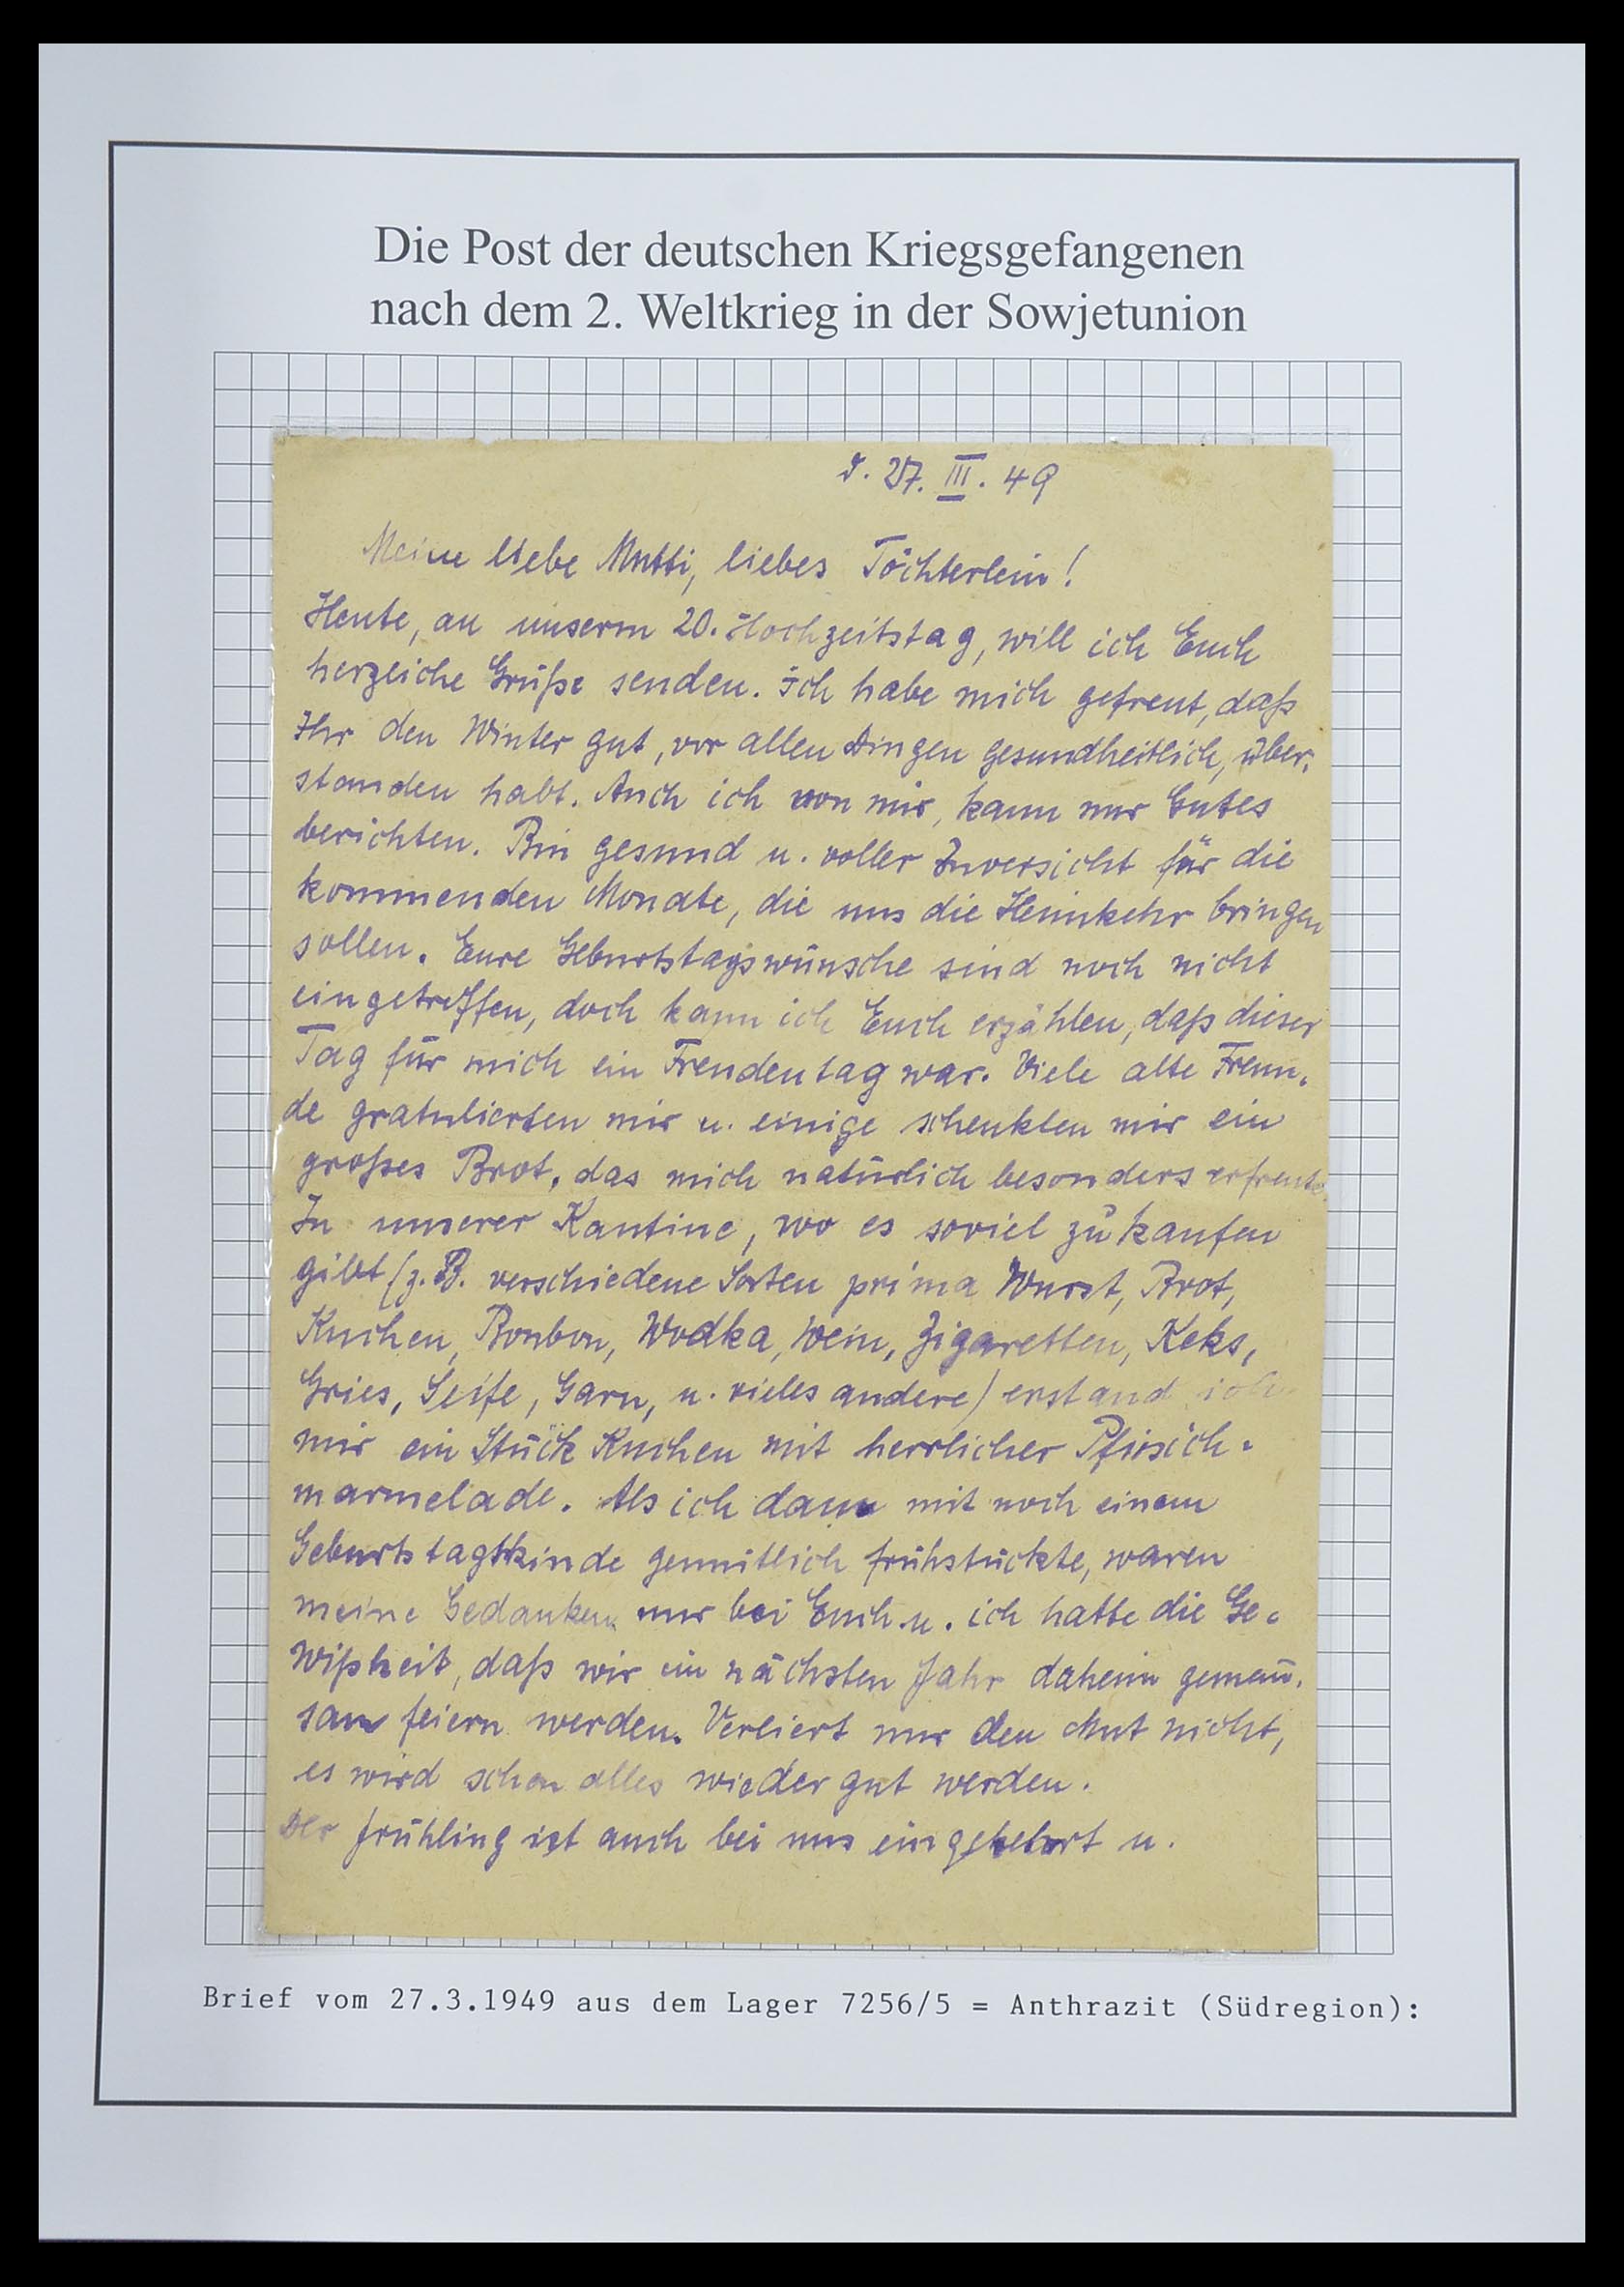 Die Post der deutschen Kriegsgefangenen
nach dem 2. Weltkrieg in der Sowjetunion
d. 27. III. 49
Meine liebe Mutti, liebes Töchterlein!
Heute, an unserm 20. Hochzeitstag, will ich Euch
herzliche Grüße senden. Ich habe mich gefreut, daß
Ihr den Winter gut, vor allen Dingen gesundheitlich, über-
standen habt. Auch ich von mir, kann nur Gutes
berichten. Bin gesund u. voller Zuversicht für die
kommenden Monate, die uns die Heimkehr bringen
sollen. Eure Geburtstagswünsche sind noch nicht
eingetroffen, doch kann ich Euch erzählen, daß dieser
Tag für mich ein Freudentag war. Viele alte Freun-
de gratulierten mir u. einige schenkten mir ein
großes Brot, das mich natürlich besonders erfreute.
In unserer Kantine, wo es soviel zu kaufen
gibt (z. B. verschiedene Sorten prima Wurst, Brot,
Kuchen, Bonbon, Wodka, Wein, Zigaretten, Keks,
Gries, Seife, Garn, u. vieles andere) erstand ich
mir ein Stück Kuchen mit herrlicher Pfirsich-
marmelade. Als ich dann mit noch einem
Geburtstagskinde gemütlich frühstückte, waren
meine Gedanken nur bei Euch u. ich hatte die Ge-
wißheit, daß wir im nächsten Jahr daheim gemein-
sam feiern werden. Verliert nur den Mut nicht,
es wird schon alles wieder gut werden.
Der Frühling ist auch bei uns eingekehrt u.
Brief vom 27.3.1949 aus dem Lager 7256/5 = Anthrazit (Südregion):